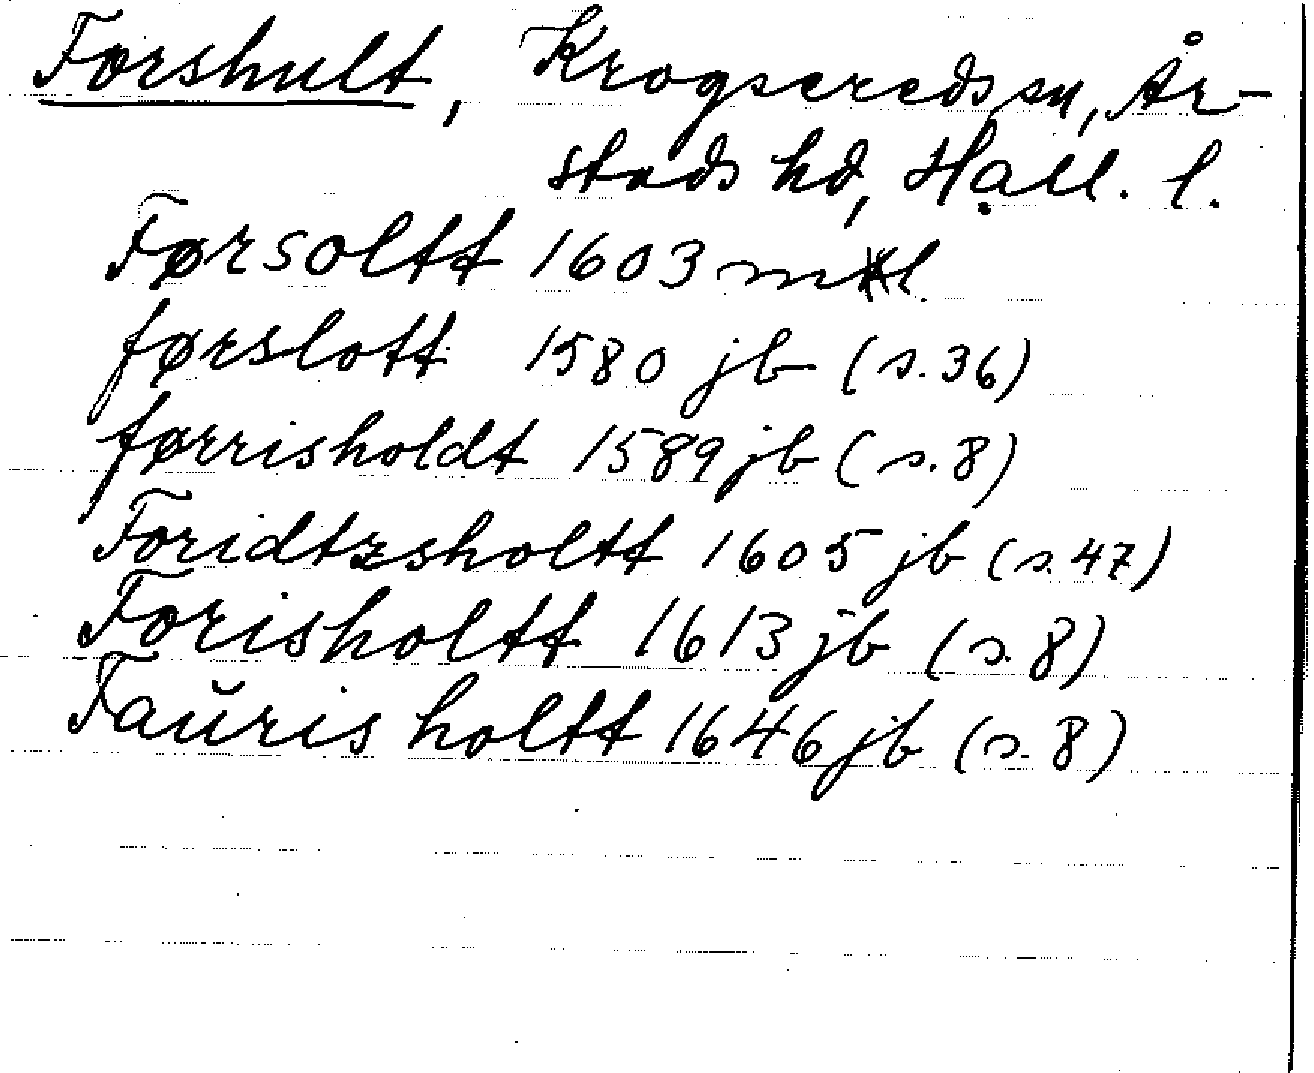 Forshult, Krogsereds sn, År-
stads hd, Hall. l.
Førsoltt 1603 mtl.
førslott 1580 jb (s. 36)
førrisholdt 1589 jb (s. 8)
Foridtzsholtt 1605 jb (s. 47)
Forisholtt 1613 jb (s. 8)
Faŭris holtt 1646 jb (s. 8)